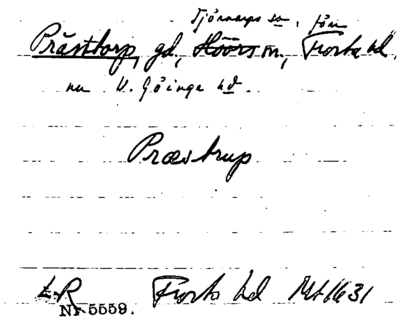 Tjörnarps sn, förr
Prästtorp, gd, Höörs sn, Frosta hd.
nu V. Göinge hd.
Præstrup
LR Frosta hd Ml 1631
Nr 5559.